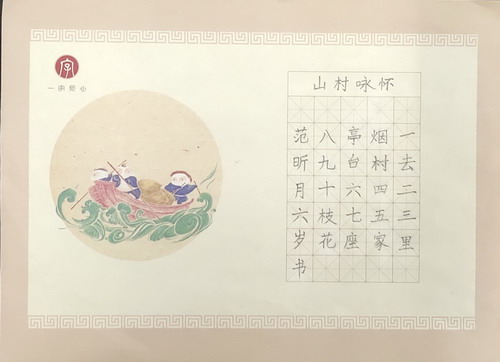 字
山村咏怀
一去二三里
烟村四五家
亭台六七座
八九十枝花
范昕月六岁书